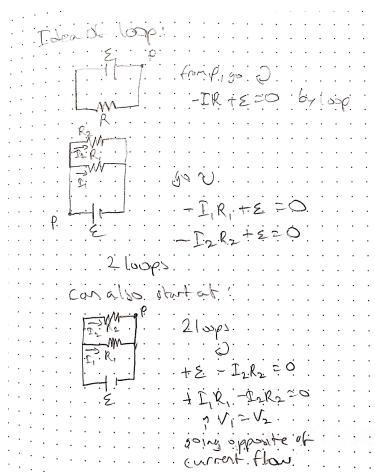 Idea of loop:
ε P
from P, go ↻
-IR + ε = 0 by loop
R
R₂
I₂ R₁
I₁
go ↻
P
-I₁R₁ + ε = 0
ε
-I₂R₂ + ε = 0
2 loops
can also start at:
P
I₂ R₂
2 loops
I₁ R₁
+ε - I₂R₂ = 0
ε
+I₁R₁ - I₂R₂ = 0
↑ V₁ = V₂
going opposite of
current flow